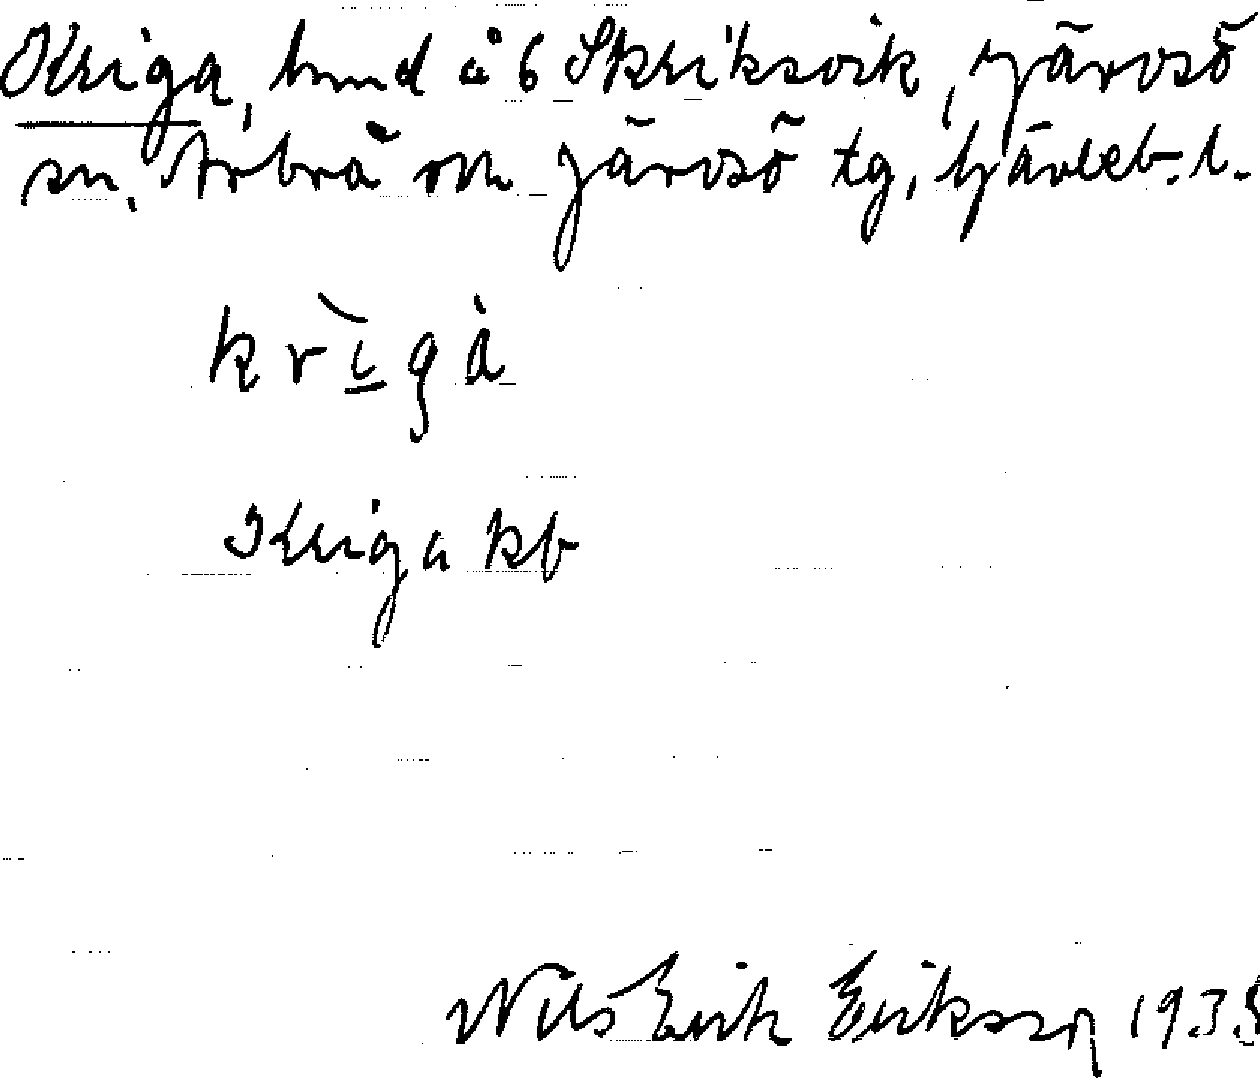 Kriga, lund å 6 Skriksvik, Järvsö
sn. Arbrå och Järvsö tg, Gävleb. l.
krı̲̀gȧ
Kriga kb
Nils Erik Eriksson 1935